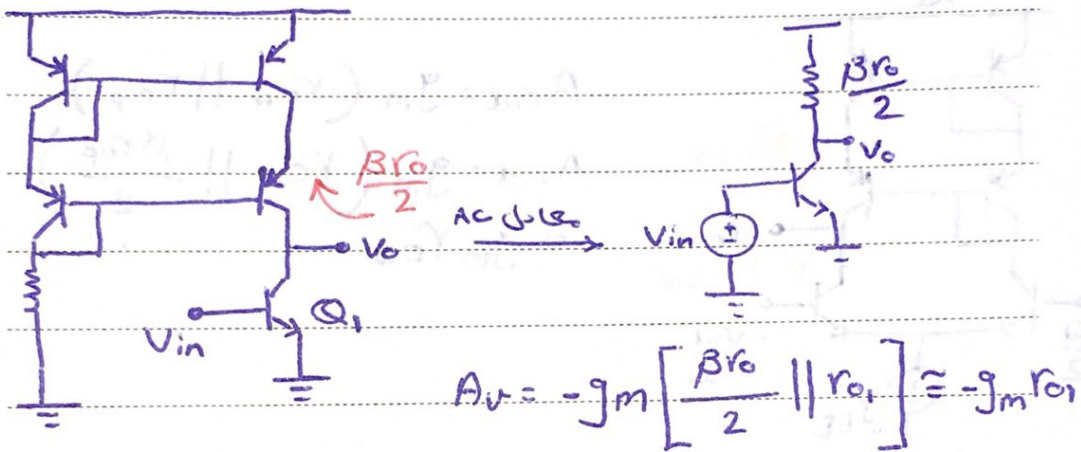 βro/2
Vo
Vin
Q1
AC معادل
βro/2
Vo
Vin
Av = -gm [ βro/2 || ro1 ] ≅ -gm ro1